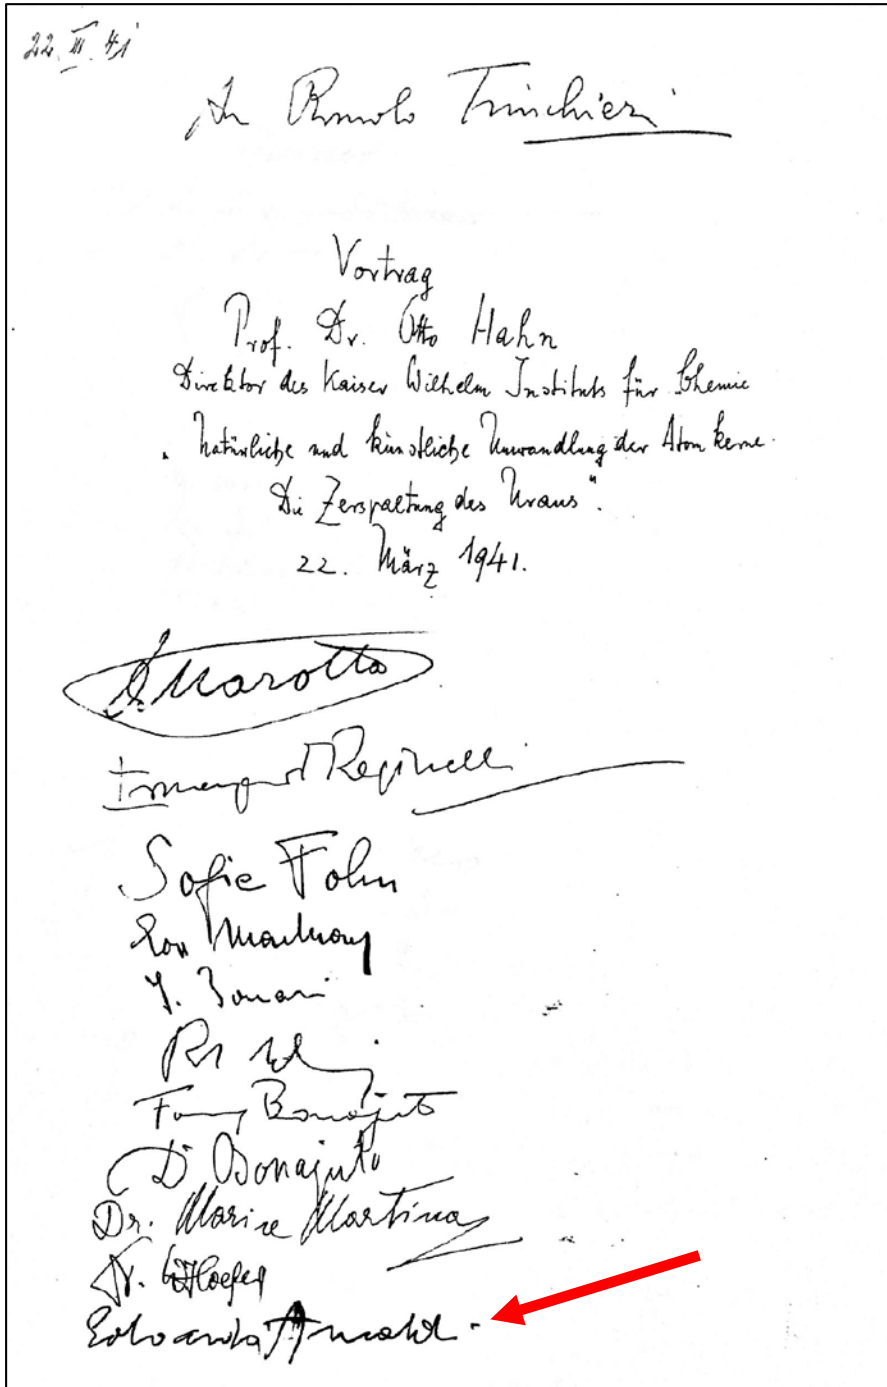 22. III. 41
Dr Romolo Trinchieri
Vortrag
Prof. Dr. Otto Hahn
Direktor des Kaiser Wilhelm Instituts für Chemie
„Natürliche und künstliche Umwandlung der Atomkerne.
Die Zerspaltung des Urans".
22. März 1941.
D. Marotta
Irmengard Reginelli
Sofie Fohn
Bonajuto
D Bonajuto
Dr. Marie Martina
Dr. Hoefer
Edoardo Amaldi